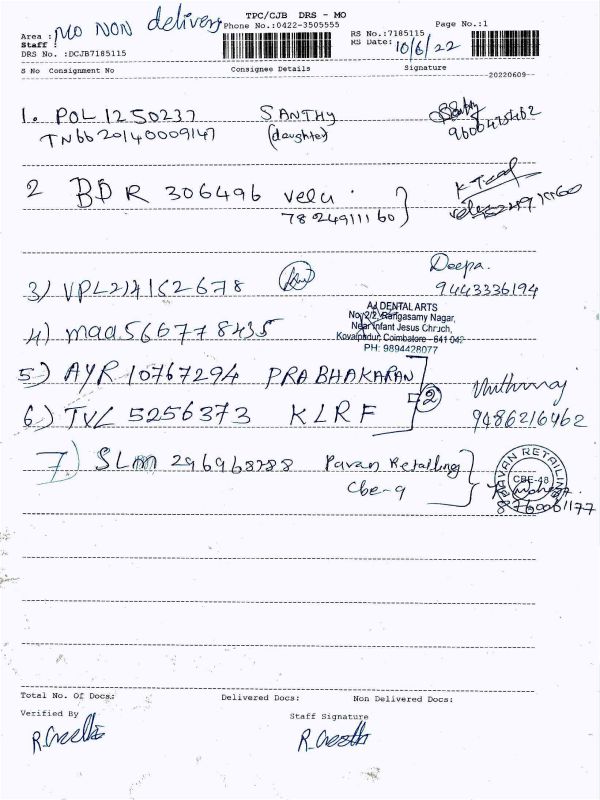 TPC/CJB DRS - MO
Area : MO NON delivery Phone No.:0422-3505555 RS No.:7185115 Page No.:1
Staff :
DRS No. :DCJB7185115 RS Date: 10/6/22
S No Consignment No Consignee Details Signature
20220609
1. POL1250237 SANTHY
TN6620140009147 (daughter)
2 BDR 306496 velu
78249111160
K
3) VPL214152678 Deepa.
9443336194
4) maa566778435
AJ DENTAL ARTS
No. 2/2, Rangasamy Nagar,
Near Infant Jesus Church,
Kovalpudur, Coimbatore - 641 042
PH: 9894428077
5) AYR 10767294 PRABHAKARAN
6) TVL 5256373 KLRF 2
9486216462
7) SLM 296968788 Pavan Retailing
Cbe-9
PAVAN RETAILING
CBE-48
8760061177
Total No. Of Docs: Delivered Docs: Non Delivered Docs:
Verified By Staff Signature